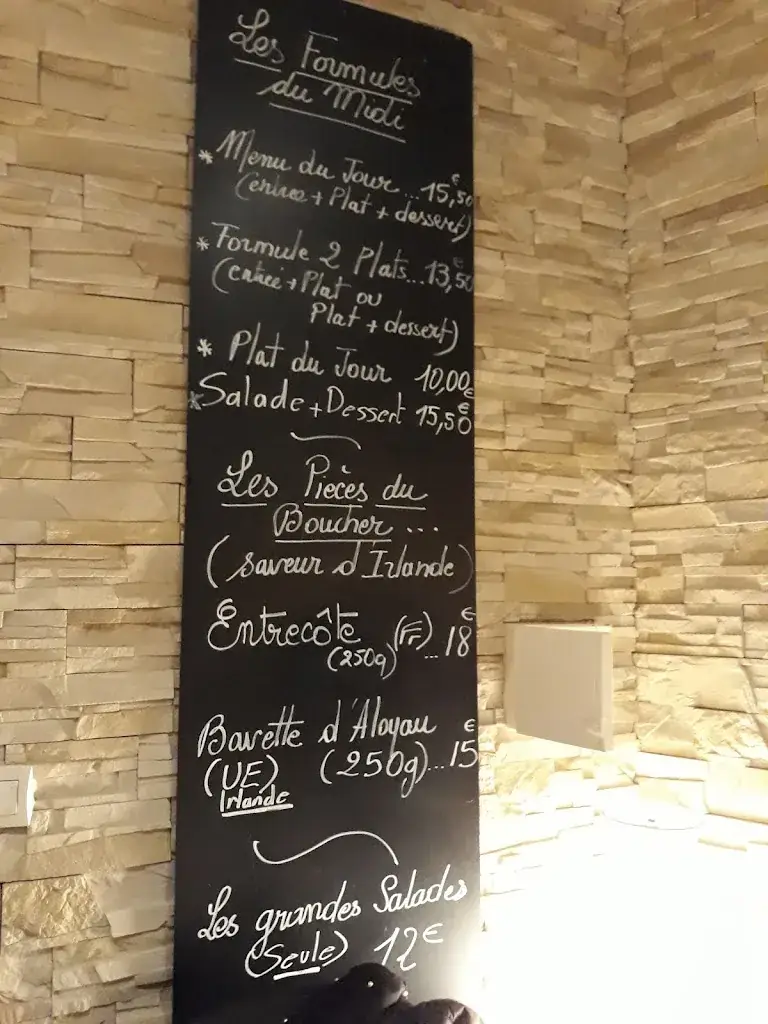 Les Formules
du Midi
* Menu du Jour ... 15,50€
(entrée + Plat + dessert)
* Formule 2 Plats... 13,50€
(entrée + Plat ou
Plat + dessert)
* Plat du Jour 10,00€
* Salade + Dessert 15,50€
Les Pièces du
Boucher ...
(saveur d'Irlande)
Entrecôte (Fr) ... 18€
(250g)
Bavette d'Aloyau €
(UE) (250g)... 15
Irlande
Les grandes Salades
(Seule) 12€